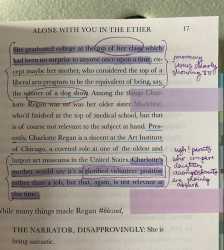 ALONE WITH YOU IN THE ETHER 17
She graduated college at the top of her class which
had been no surprise to anyone once upon a time, ex-
cept maybe her mother, who considered the top of a
liberal-arts program to be the equivalent of being, say,
the winner of a dog show. Among the things Char-
lotte Regan was not was her older sister Madeline,
who'd finished at the top of medical school, but that
is of course not relevant to the subject at hand. Pres-
ently, Charlotte Regan is a docent at the Art Institute
of Chicago, a coveted role at one of the oldest and
largest art museums in the United States. Charlotte's
mother would say it's a glorified volunteer position
rather than a job, but that, again, is not relevant at
this time.
While many things made Regan
THE NARRATOR, DISAPPROVINGLY: She is
being sarcastic.
jealousy
clearly
showing
ugh! parents
who compare
accomplishments